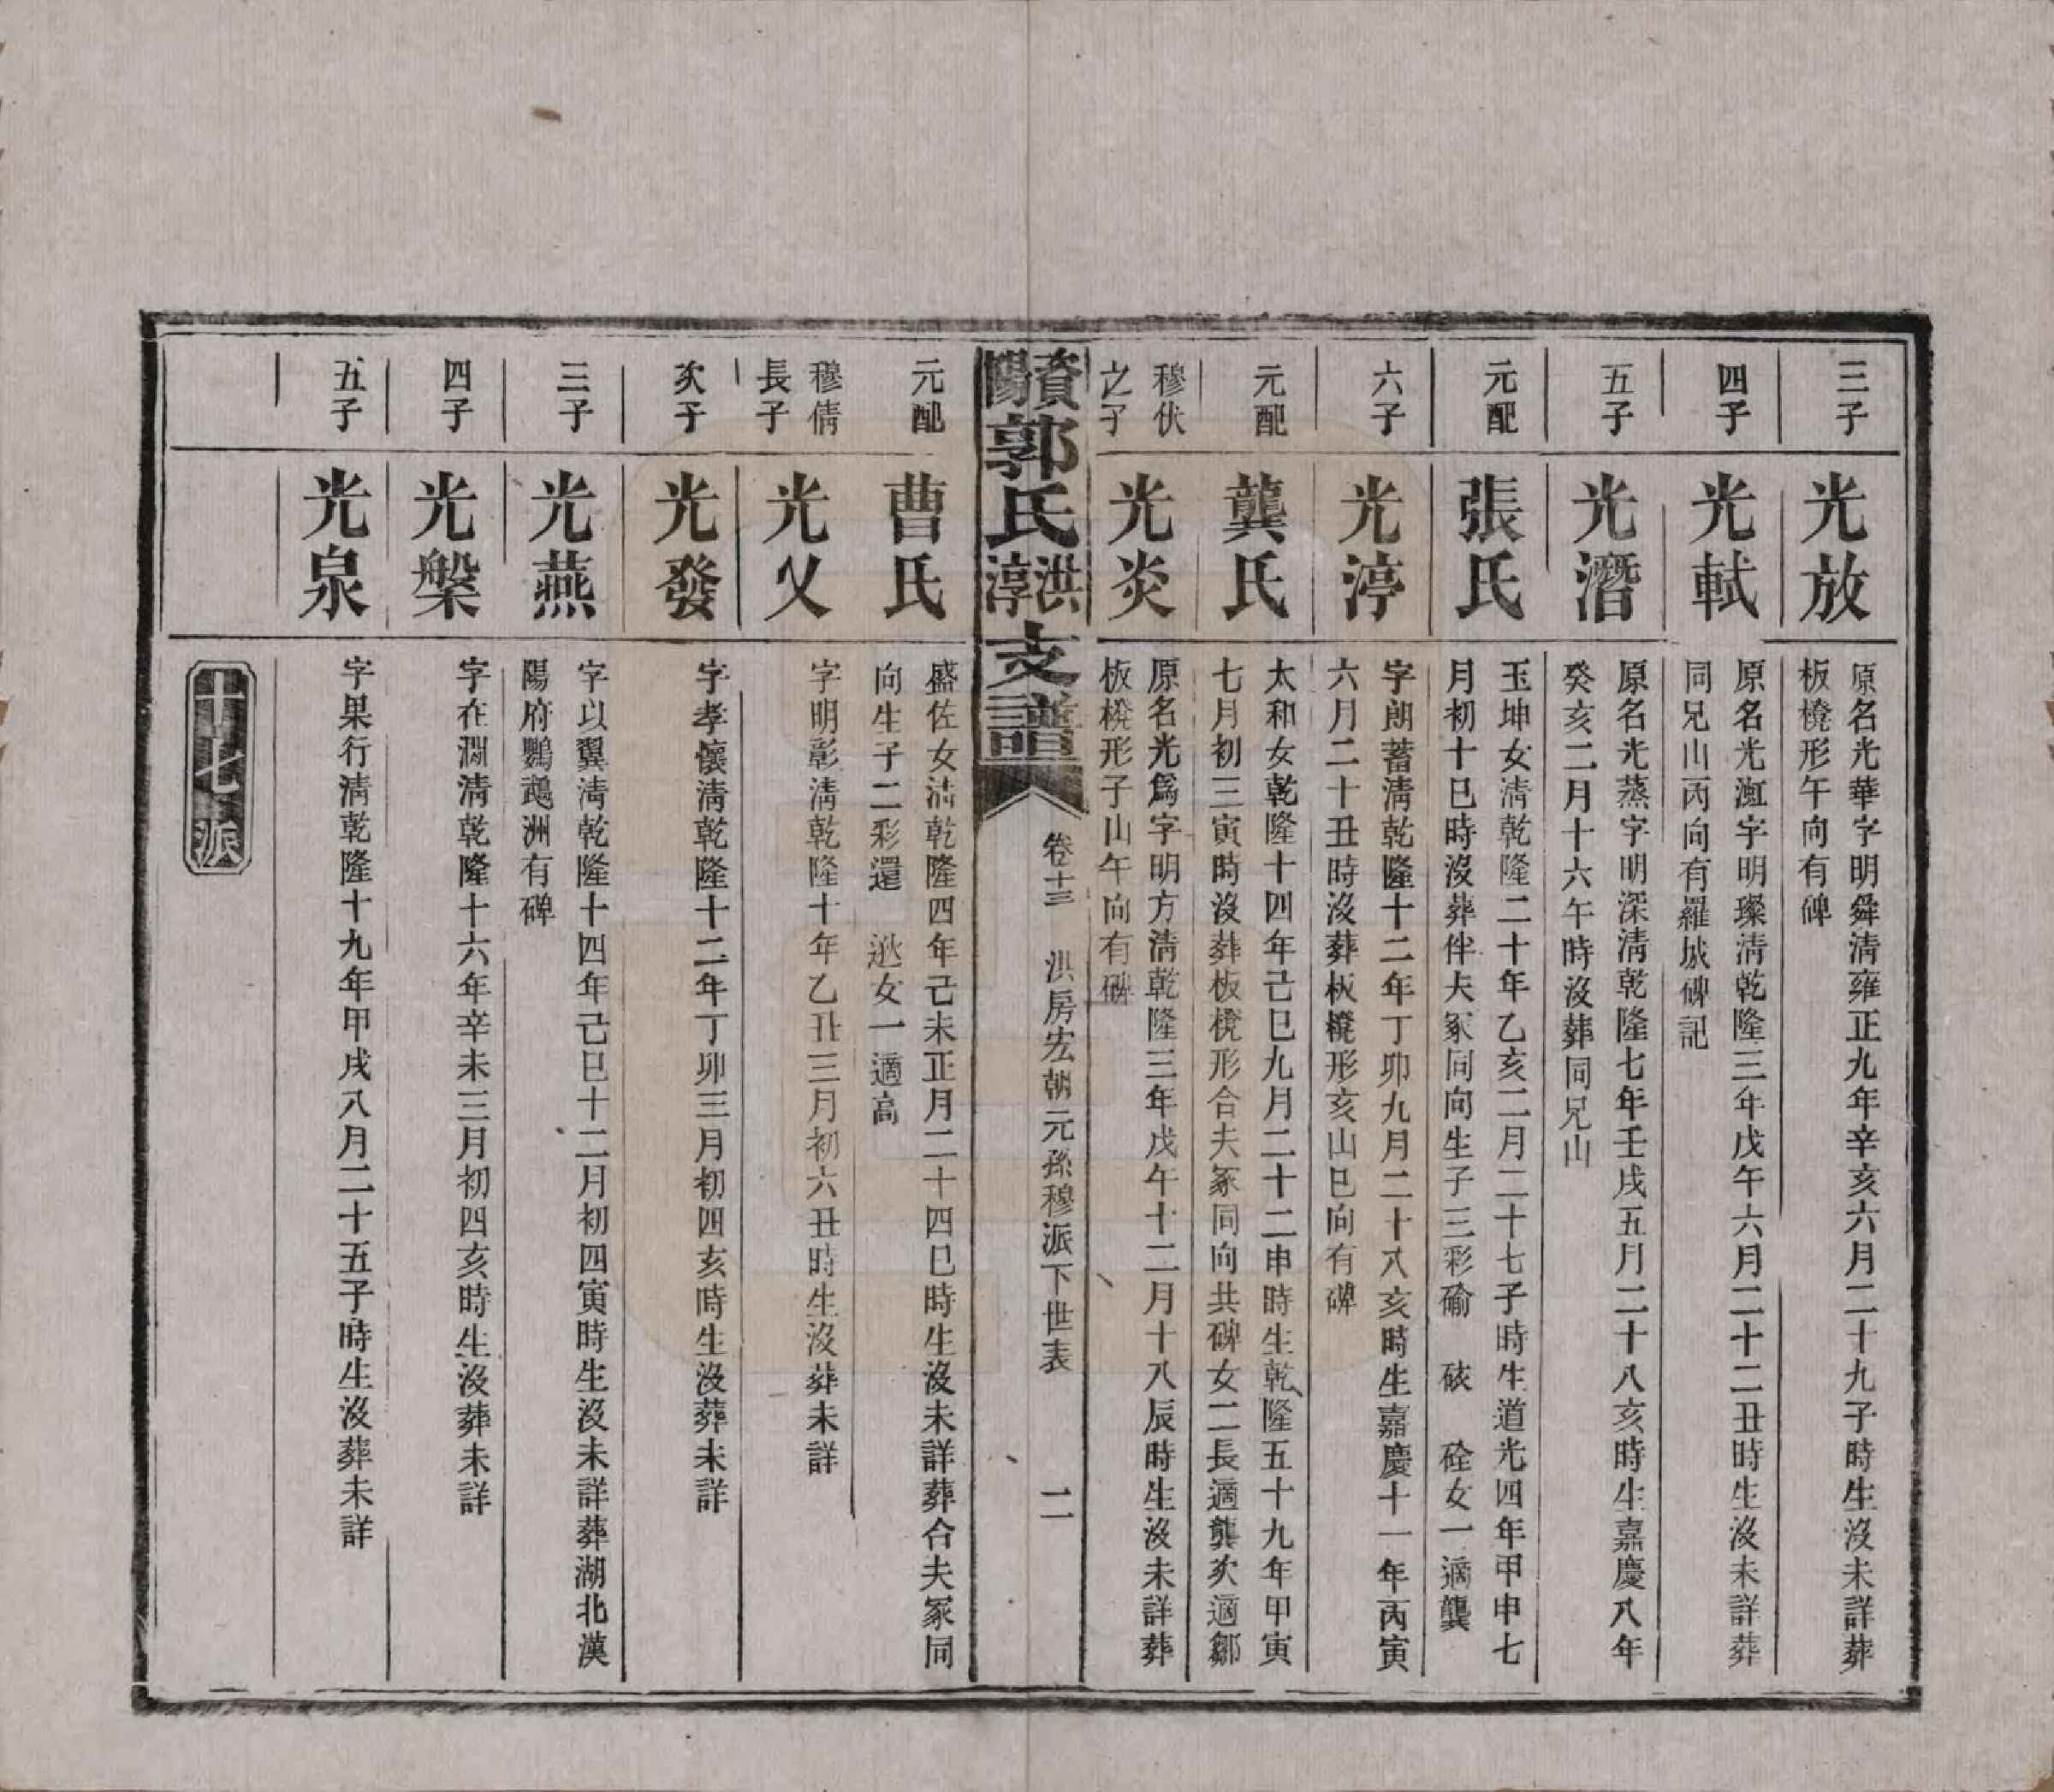 三子
光放
原名光華字明舜清雍正九年辛亥六月二十九子時生沒未詳葬
板櫈形午向有碑
四子
光軾
原名光漋字明璨清乾隆三年戊午六月二十二丑時生沒未詳葬
同兄山丙向有羅城碑記
五子
光潛
原名光蒸字明深清乾隆七年壬戌五月二十八亥時生嘉慶八年
癸亥二月十六午時沒葬同兄山
元配
張氏
玉坤女清乾隆二十年乙亥二月二十七子時生道光四年甲申七
月初十巳時沒葬伴夫冢同向生子三彩碖 硋 硂女一適龔
六子
光渟
字朗蓄清乾隆十二年丁卯九月二十八亥時生嘉慶十一年丙寅
六月二十丑時沒葬板櫈形亥山巳向有碑
元配
龔氏
太和女乾隆十四年己巳九月二十二申時生乾隆五十九年甲寅
七月初三寅時沒葬板櫈形合夫冢同向共碑女二長適龔次適鄒
穆伏
之子
光炎
原名光爲字明方清乾隆三年戊午十二月十八辰時生沒未詳葬
板櫈形子山午向有碑
資陽郭氏洪淳支譜
卷十三 洪房宏朝元孫穆派下世表 二
元配
曹氏
盛佐女清乾隆四年己未正月二十四巳時生沒未詳葬合夫冢同
向生子二彩還 逖女一適高
穆倩
長子
光乂
字明彰清乾隆十年乙丑三月初六丑時生沒葬未詳
次子
光發
字孝懷清乾隆十二年丁卯三月初四亥時生沒葬未詳
三子
光燕
字以翼清乾隆十四年己巳十二月初四寅時生沒未詳葬湖北漢
陽府鸚鵡洲有碑
四子
光槃
字在澗清乾隆十六年辛未三月初四亥時生沒葬未詳
五子
光泉
字果行清乾隆十九年甲戌八月二十五子時生沒葬未詳
十七派